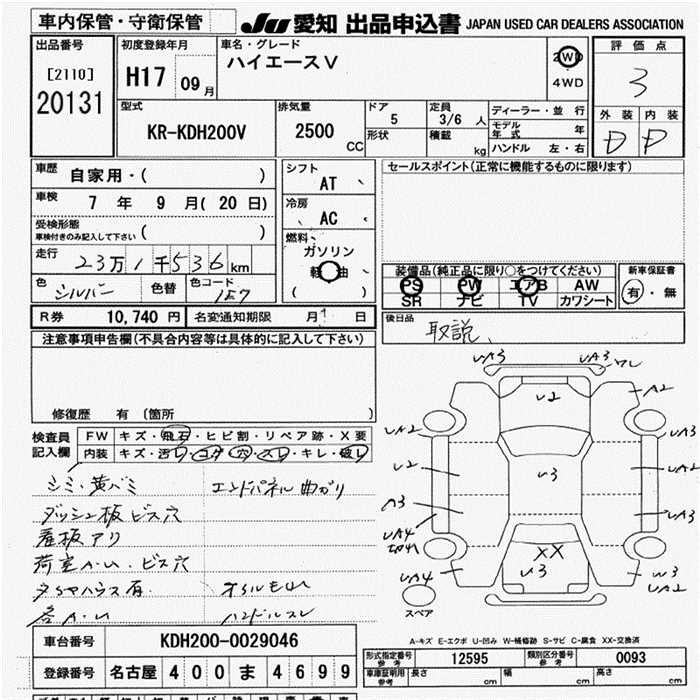 車内保管・守衛保管
JU 愛知 出品申込書 JAPAN USED CAR DEALERS ASSOCIATION
出品番号
[2110]
20131
初度登録年月
H17 09月
車名・グレード
ハイエースV
2WD
4WD
評価点
3
外装 内装
D D
型式
KR-KDH200V
排気量
2500 CC
ドア
5
形状
定員
3/6 人
積載
kg
ディーラー・並行
モデル年式 年
ハンドル 左・右
車歴
自家用・( )
車検
7 年 9 月(20 日)
受検形態
車検付きのみ記入して下さい ( )
走行
23万1千536km
色 シルバー 色替 色コード 1E7
シフト
AT
冷房
AC
燃料
ガソリン
軽油
( )
セールスポイント(正常に機能するものに限ります)
装備品(純正品に限り○をつけてください)
PS PW エアB AW
SR ナビ TV カワシート
新車保証書
有・無
R券 10,740 円 名変通知期限 月 日
後日品
取説
注意事項申告欄(不具合内容等は具体的に記入して下さい)
修復歴 有 (箇所 )
検査員
記入欄
FW キズ・飛石・ヒビ割・リペア跡・X要
内装 キズ・汚レ・コゲ・穴・スレ・キレ・破レ
シミ・黄バミ エンドパネル曲がり
ダッシュ板ビス穴
看板アリ
ビス穴
ハンドルスレ
UA3 UA3
A2
U2
UA2 UA3
U2 U3 UA2
A3 UA3
UA4
XX
U3
UA4 W3
UA2
スペア
A-キズ E-エクボ U-凹み W-補修跡 S-サビ C-腐食 XX-交換済
車台番号 KDH200-0029046
登録番号 名古屋 400 ま 4699
形式指定番号 参考 12595 類別区分番号 参考 0093
車庫証明用 参考 長さ cm 幅 cm 高さ cm